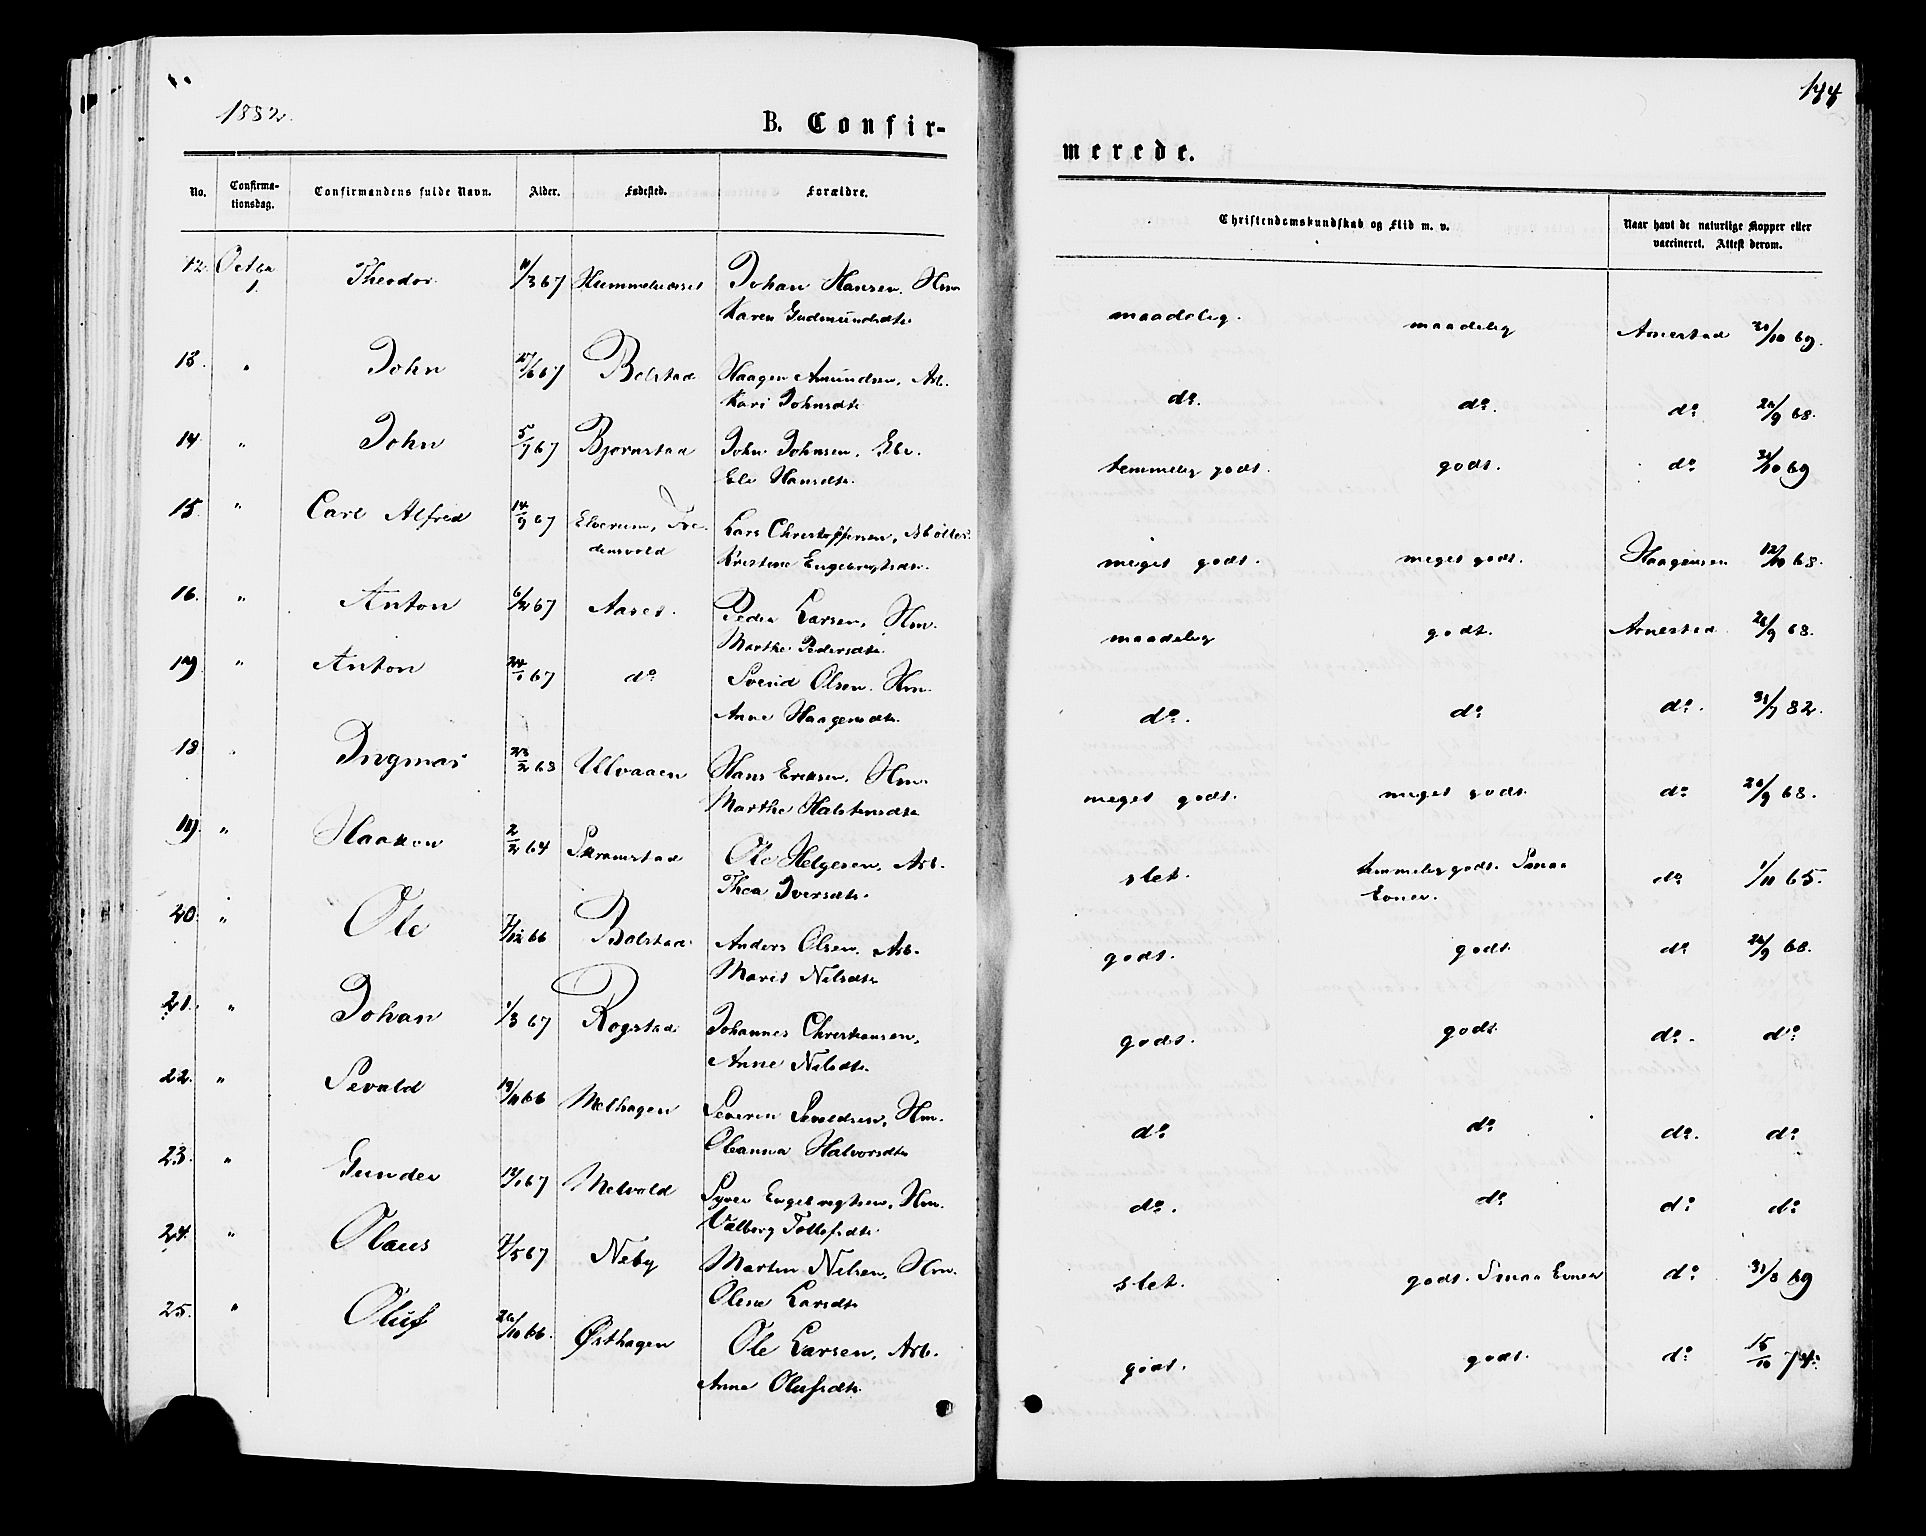 1882.
B. Confir-
merede.
144
No.
Confirma-
tionsdag.
Confirmandens fulde Navn.
Alder.
Fødested.
Forældre.
Christendomskundskab og Flid m. v.
Naar havt de naturlige Kopper eller
vaccineret. Attest derom.
12. Octbr 1. Theodor 11/3 67 Johan Hansen. Hm
Karen Gudmundsdtr
maadelig. maadelig Arnestad /10 69.
13. " John 27/6 67 Bolstad Haagen Amundsen, Arb.
Kari Johnsdtr
do. do. do 26/9 68.
14. " John 5/9 67 Bjørnstad John Johnsen,
Eli Hansdtr.
temmelig godt. godt. do 31/10 69
15. " Carl Alfred 14/9 67 Elverum, Fre-
densvold
Lars Christoffersen, Møller.
Kristine Engebregtsdtr.
meget godt. meget godt. Haagensen 12/10 68.
16. " Anton 6/12 67 Aaset. Peder Larsen, Hm.
Marthe Pedersdtr.
maadelig godt. Arnestad. 26/9 68.
17. " Anton 24/1 67 do Svend Olsen. Hm.
Anne Haagensdtr.
do. do do. 31/7 82.
18 " Ingmar 23/2 68 Ulvaaen Hans Eriksen. Hm.
Marthe Halstensdtr
meget godt. meget godt. do 26/9 68.
19. " Haakon 2/2 64 Skramstad Ole Helgesen, Arb.
Thea Iversdtr.
slet. temmelig godt. Smaa
Evner.
do 1/11 65.
20. " Ole 7/12 66 Bolstad Anders Olsen. Arb.
Marit Nilsdtr
godt. godt. do 26/9 68.
21. " Johan 1/3 67 Rogstad Johannes Christiansen,
Anne Nilsdtr.
godt. godt do. do
22. " Sevald 19/11 66 Melhagen Severin Sevaldsen, Hm.
Oleanna Halvorsdtr
do do do. do
23. " Gunder 12/1 67 Melvold Syver Engebregtsen, Hm.
Valborg Tollefsdtr
do. do do do
24. " Olaus 7/5 67 Neby Martin Nilsen, Hm.
Oline Larsdtr
slet. godt. Smaa Evner do 31/8 69
25. " Oluf 26/10 66. Østhagen Ole Larsen, Arb.
Anne Olufsdtr.
godt. godt. do 15/10 74.